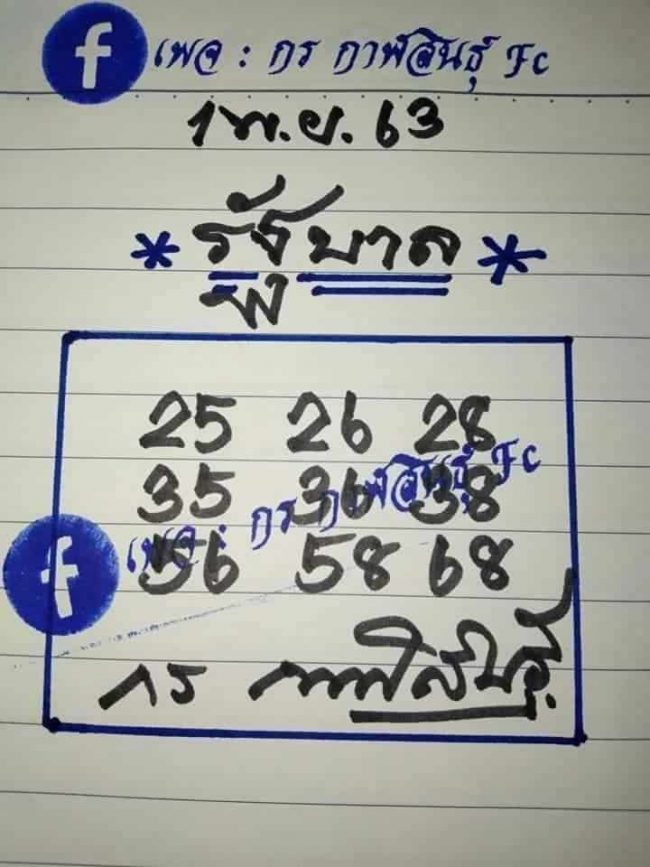 f เพจ : กร กาฬสินธุ์ Fc
1 พ.ย. 63
* รัฐบาล *
25 26 28
35 36 38
f เพจ : กร กาฬสินธุ์ Fc
56 58 68
กร กาฬสินธุ์